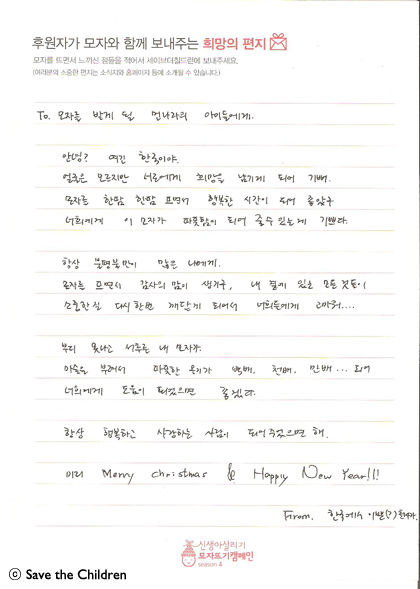 후원자가 모자와 함께 보내주는 희망의 편지
모자를 뜨면서 느끼신 점들을 적어서 세이브더칠드런에 보내주세요.
(여러분의 소중한 편지는 소식지와 홈페이지 등에 소개될 수 있습니다.)
To. 모자를 받게 될 먼나라의 아이들에게.
안녕? 여긴 한국이야.
얼굴은 모르지만 너희에게 희망을 남기게 되어 기뻐.
모자를 한땀 한땀 뜨면서 행복한 시간이 되어 좋았구
너희에게 이 모자가 따뜻함이 되어 줄 수 있는게 기쁘다.
항상 불평불만이 많은 나에게.
모자를 뜨면서 감사의 맘이 생기구, 내 곁에 있는 모든 것들이
소중한 걸 다시 한번 깨닫게 되어서 너희들에게 고마워....
부디 못나고 서투른 내 모자가.
마음을 부래서 따뜻한 온기가 백배. 천배. 만배... 되어
너희에게 도움이 되었으면 좋겠다.
항상 행복하고 사랑하는 사람이 되어주었으면 해.
미리 Merry christmas & Happy New Year!!!
From. 한국에서 이쁜(?)
신생아살리기
모자뜨기캠페인
season 4
ⓒ Save the Children